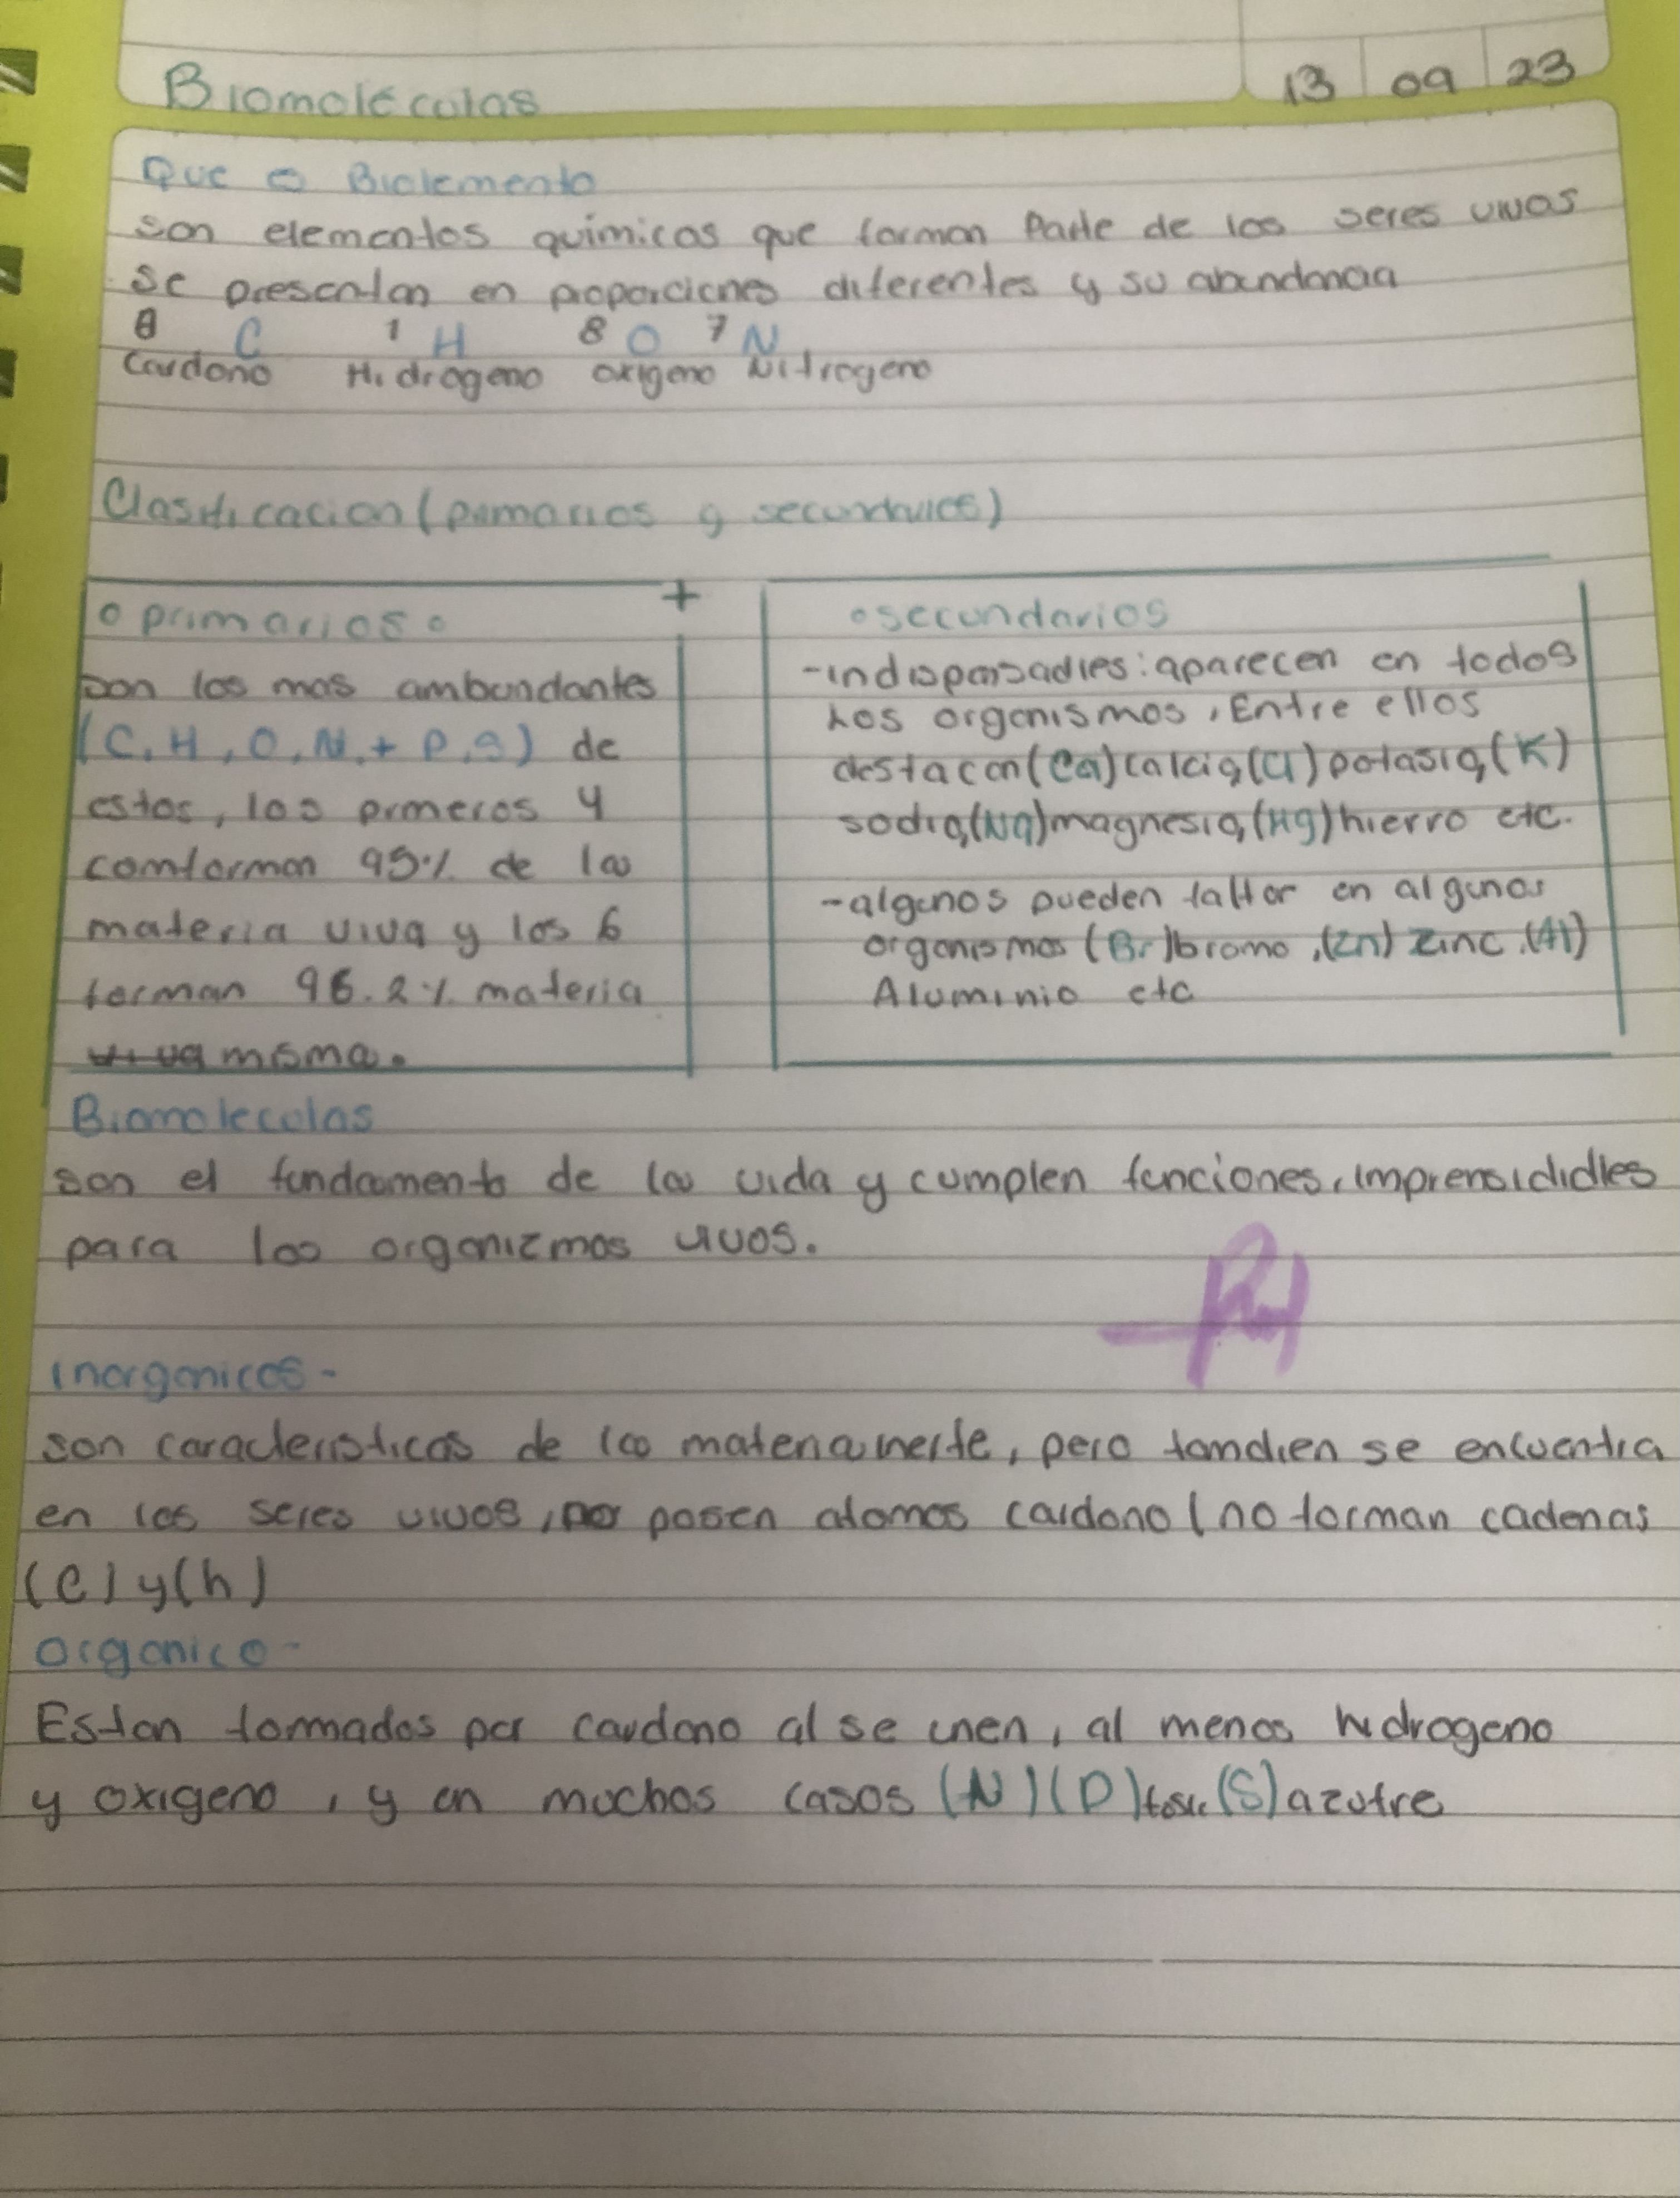 Biomolécolas
13 09 23
Que es Biolemento
son elementos químicos que forman Parte de los seres vivos
Se presentan en proporciones diferentes y su abundancia
C 1 H 8 O 7 N
Cardono Hidrogeno oxigeno Nitrogeno
Clasificacion (primarios y secundarios)
primarios
+
son los mas ambundantes
(C, H, O, N, + P, S) de
estos, los primeros 4
comforman 95% de la
materia viva y los 6
forman 96.2% materia
viva misma.
secundarios
-indispensadles: aparecen en todos
Los organismos, Entre ellos
destacan (Ca) calcio, (Cl) potasio, (K)
sodio, (Na) magnesio, (Mg) hierro etc.
-algunos pueden faltar en algunos
organismos (Br) bromo, (Zn) Zinc, (Al)
Aluminio etc
Biomolecolas
son el fundamento de la vida y cumplen funciones, imprensididles
para los organizmos vivos.
Inorganicos-
son caracteristicas de la materia inerte, pero tamdien se encuentra
en los seres vivos, no posen atomos cardono (no forman cadenas
(C) y (h)
Organico-
Estan formados por cardono al se unen, al menos hidrogeno
y oxigeno, y en muchos casos (N) (P) (S) azufre